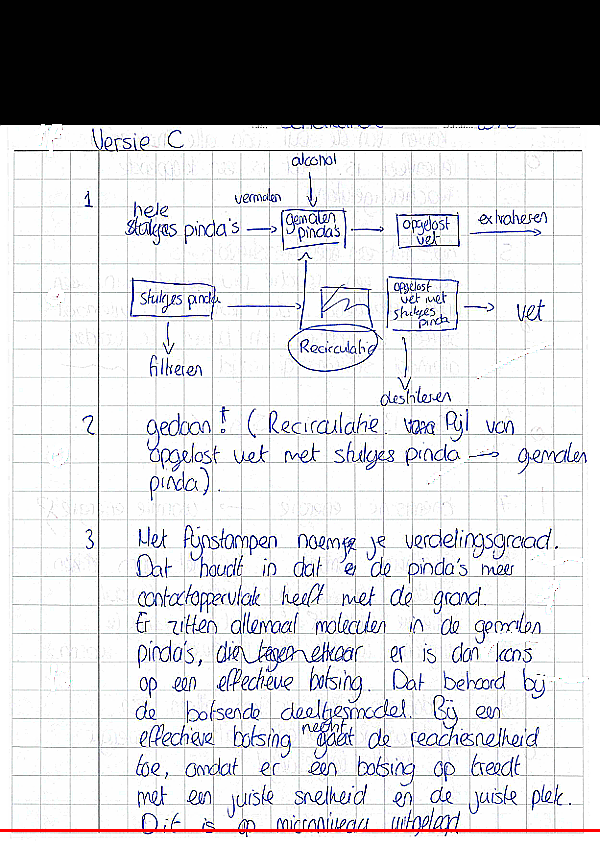 Versie C
alcohol
1
vermalen
hele
pinda's
gemalen
pinda's
opgelost
vet
extraheren
stukjes pinda
opgelost
vet met
stukjes
pinda
vet
Recirculatie
filtreren
destileren
2 gedaan! (Recirculatie Pijl van
opgelost vet met stukjes pinda → gemalen
pinda).
3 Het fijnstampen noem je verdelingsgraad.
Dat houdt in dat de pinda's meer
contactoppervlak heeft met de grond.
Er zitten allemaal moleculen in de gemalen
pinda's, er is dan kans
op een effectieve botsing. Dat behoord bij
de botsende deeltjesmodel. Bij een
effectieve botsing neemt de reactiesnelheid
toe, omdat er een botsing op treedt
met een juiste snelheid en de juiste plek.
Dit is op microniveau uitgelegd